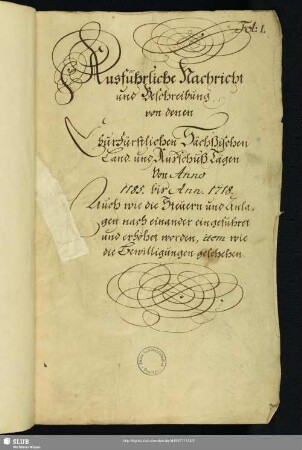 Fol: 1.
Ausführliche Nachricht
und Beschreibung
von denen
Churfürstlichen Sächsischen
Land und Ausschuß Tagen
Von Anno
1185. bis Ann. 1718.
Auch wie die Steuern und Anla-
gen nach einander eingeführet
und erhöhet worden, item wie
die Bewilligungen geschehen.
SLUB
Wir führen Wissen.